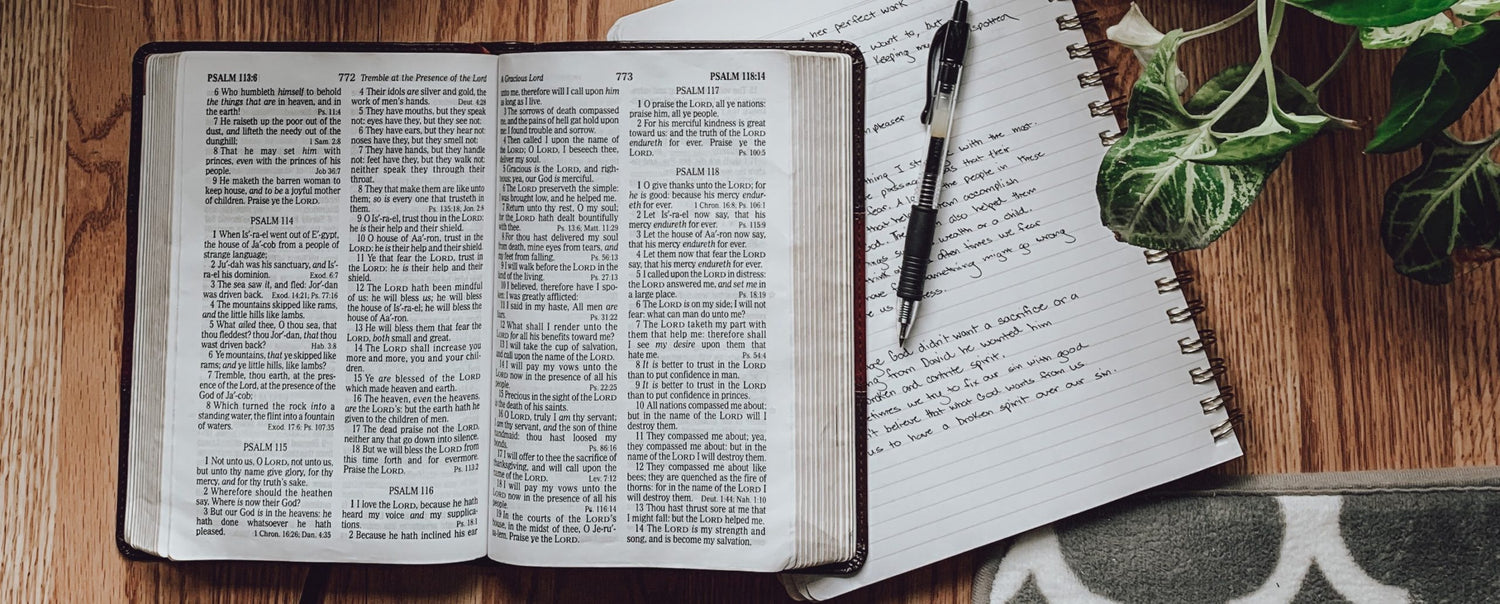 PSALM 113:6
772 Tremble at the Presence of the Lord
6 Who humbleth himself to behold
the things that are in heaven, and in
the earth! Ps. 11:4
7 He raiseth up the poor out of the
dust, and lifteth the needy out of the
dunghill; 1 Sam. 2:8
8 That he may set him with
princes, even with the princes of his
people. Job 36:7
9 He maketh the barren woman to
keep house, and to be a joyful mother
of children. Praise ye the LORD.
PSALM 114
1 When Is'-ra-el went out of E'-gypt,
the house of Ja'-cob from a people of
strange language;
2 Ju'-dah was his sanctuary, and Is'-
ra-el his dominion. Exod. 6:7
3 The sea saw it, and fled: Jor'-dan
was driven back. Exod. 14:21; Ps. 77:16
4 The mountains skipped like rams,
and the little hills like lambs.
5 What ailed thee, O thou sea, that
thou fleddest? thou Jor'-dan, that thou
wast driven back? Hab. 3:8
6 Ye mountains, that ye skipped like
rams; and ye little hills, like lambs?
7 Tremble, thou earth, at the pres-
ence of the Lord, at the presence of the
God of Ja'-cob;
8 Which turned the rock into a
standing water, the flint into a fountain
of waters. Exod. 17:6; Ps. 107:35
PSALM 115
1 Not unto us, O LORD, not unto us,
but unto thy name give glory, for thy
mercy, and for thy truth's sake.
2 Wherefore should the heathen
say, Where is now their God?
3 But our God is in the heavens: he
hath done whatsoever he hath
pleased. 1 Chron. 16:26; Dan. 4:35
4 Their idols are silver and gold, the
work of men's hands. Deut. 4:28
5 They have mouths, but they speak
not: eyes have they, but they see not:
6 They have ears, but they hear not:
noses have they, but they smell not:
7 They have hands, but they handle
not: feet have they, but they walk not:
neither speak they through their
throat.
8 They that make them are like unto
them; so is every one that trusteth in
them. Ps. 135:18; Jon. 2:8
9 O Is'-ra-el, trust thou in the LORD:
he is their help and their shield.
10 O house of Aa'-ron, trust in the
LORD: he is their help and their shield.
11 Ye that fear the LORD, trust in
the LORD: he is their help and their
shield.
12 The LORD hath been mindful
of us: he will bless us; he will bless
the house of Is'-ra-el; he will bless the
house of Aa'-ron.
13 He will bless them that fear the
LORD, both small and great.
14 The LORD shall increase you
more and more, you and your chil-
dren.
15 Ye are blessed of the LORD
which made heaven and earth.
16 The heaven, even the heavens,
are the LORD's: but the earth hath he
given to the children of men.
17 The dead praise not the LORD,
neither any that go down into silence.
18 But we will bless the LORD from
this time forth and for evermore.
Praise the LORD. Ps. 113:2
PSALM 116
1 I love the LORD, because he hath
heard my voice and my supplica-
tions. Ps. 18:1
2 Because he hath inclined his ear
A Gracious Lord
773
PSALM 118:14
unto me, therefore will I call upon him
as long as I live.
3 The sorrows of death compassed
me, and the pains of hell gat hold upon
me: I found trouble and sorrow.
4 Then called I upon the name of
the LORD; O LORD, I beseech thee,
deliver my soul.
5 Gracious is the LORD, and righ-
teous; yea, our God is merciful.
6 The LORD preserveth the simple:
I was brought low, and he helped me.
7 Return unto thy rest, O my soul;
for the LORD hath dealt bountifully
with thee. Ps. 13:6; Matt. 11:29
8 For thou hast delivered my soul
from death, mine eyes from tears, and
my feet from falling. Ps. 56:13
9 I will walk before the LORD in the
land of the living. Ps. 27:13
10 I believed, therefore have I spo-
ken: I was greatly afflicted:
11 I said in my haste, All men are
liars. Ps. 31:22
12 What shall I render unto the
LORD for all his benefits toward me?
13 I will take the cup of salvation,
and call upon the name of the LORD.
14 I will pay my vows unto the
LORD now in the presence of all his
people. Ps. 22:25
15 Precious in the sight of the LORD
is the death of his saints.
16 O LORD, truly I am thy servant;
I am thy servant, and the son of thine
handmaid: thou hast loosed my
bonds. Ps. 86:16
17 I will offer to thee the sacrifice of
thanksgiving, and will call upon the
name of the LORD. Lev. 7:12
18 I will pay my vows unto the
LORD now in the presence of all his
people, Ps. 116:14
19 In the courts of the LORD's
house, in the midst of thee, O Je-ru'-
sa-lem. Praise ye the LORD.
PSALM 117
1 O praise the LORD, all ye nations:
praise him, all ye people.
2 For his merciful kindness is great
toward us: and the truth of the LORD
endureth for ever. Praise ye the
LORD. Ps. 100:5
PSALM 118
1 O give thanks unto the LORD; for
he is good: because his mercy endur-
eth for ever. 1 Chron. 16:8; Ps. 106:1
2 Let Is'-ra-el now say, that his
mercy endureth for ever. Ps. 115:9
3 Let the house of Aa'-ron now say,
that his mercy endureth for ever.
4 Let them now that fear the LORD
say, that his mercy endureth for ever.
5 I called upon the LORD in distress:
the LORD answered me, and set me in
a large place. Ps. 18:19
6 The LORD is on my side; I will not
fear: what can man do unto me?
7 The LORD taketh my part with
them that help me: therefore shall
I see my desire upon them that
hate me. Ps. 54:4
8 It is better to trust in the LORD
than to put confidence in man.
9 It is better to trust in the LORD
than to put confidence in princes.
10 All nations compassed me about:
but in the name of the LORD will I
destroy them.
11 They compassed me about; yea,
they compassed me about: but in the
name of the LORD I will destroy them.
12 They compassed me about like
bees; they are quenched as the fire of
thorns: for in the name of the LORD I
will destroy them. Deut. 1:44; Nah. 1:10
13 Thou hast thrust sore at me that
I might fall: but the LORD helped me.
14 The LORD is my strength and
song, and is become my salvation.
her perfect work
want to, but
Keeping my spotted
pleaser
thing I with the most.
that their
fear. A the people in these
from accomplish
also helped them
wealth or a child.
often times we fear
something might go wrong
God didn't want a sacrifice or a
from David he wanted him
and contrite spirit.
we try to fix our sin with good
believe that what God wants from us
us to have a broken spirit over our sin.